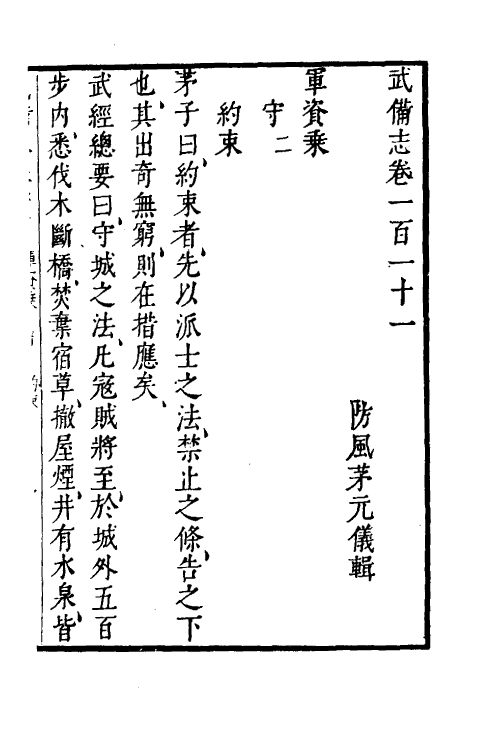 武備志卷一百一十一
防風茅元儀輯
軍資乗
守二
約束
茅子曰、約束者、先以派士之法、禁止之條、告之下
也、其出奇無窮、則在措應矣、
武經總要曰、守城之法、凡寇賊將至、於城外五百
步内、悉伐木斷橋、焚棄宿草、撤屋煙、井有水泉、皆